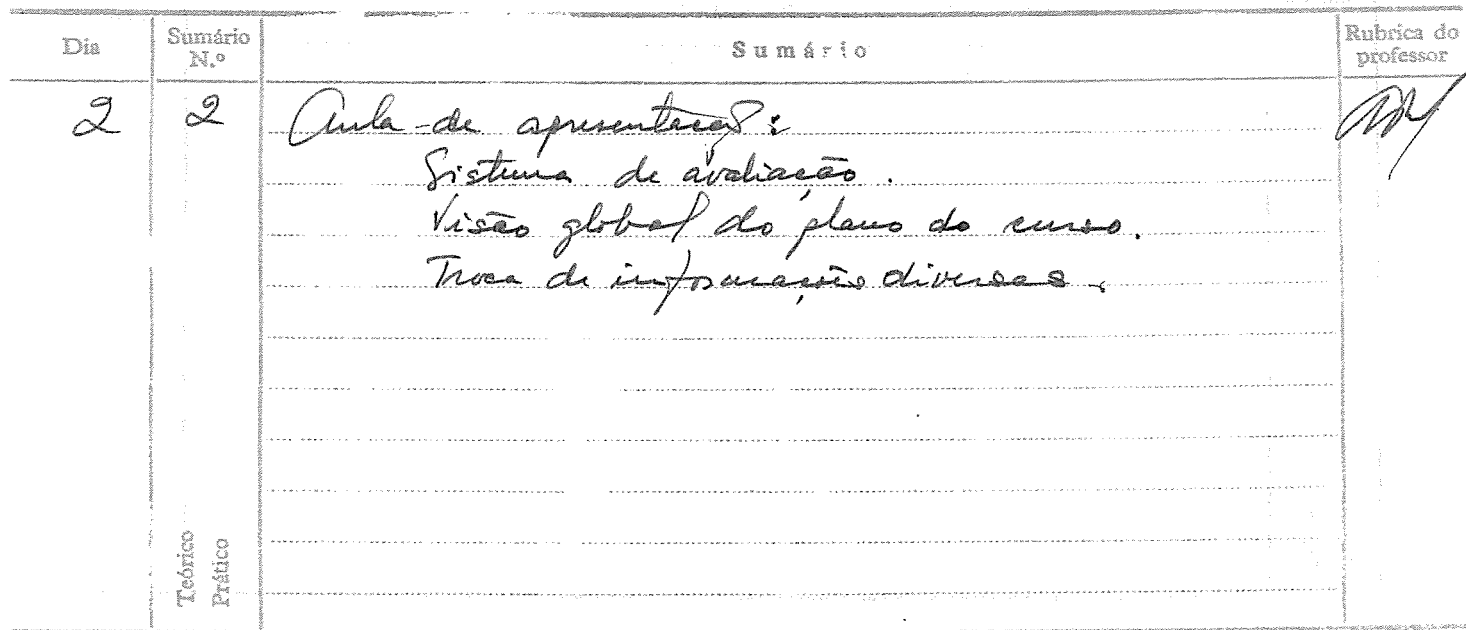 Dia Sumário N.º Sumário Rubrica do professor
2 2 Aula de apresentação:
Sistema de avaliação.
Visão global do plano do curso.
Troca de informações diversas.
Teórico
Prático